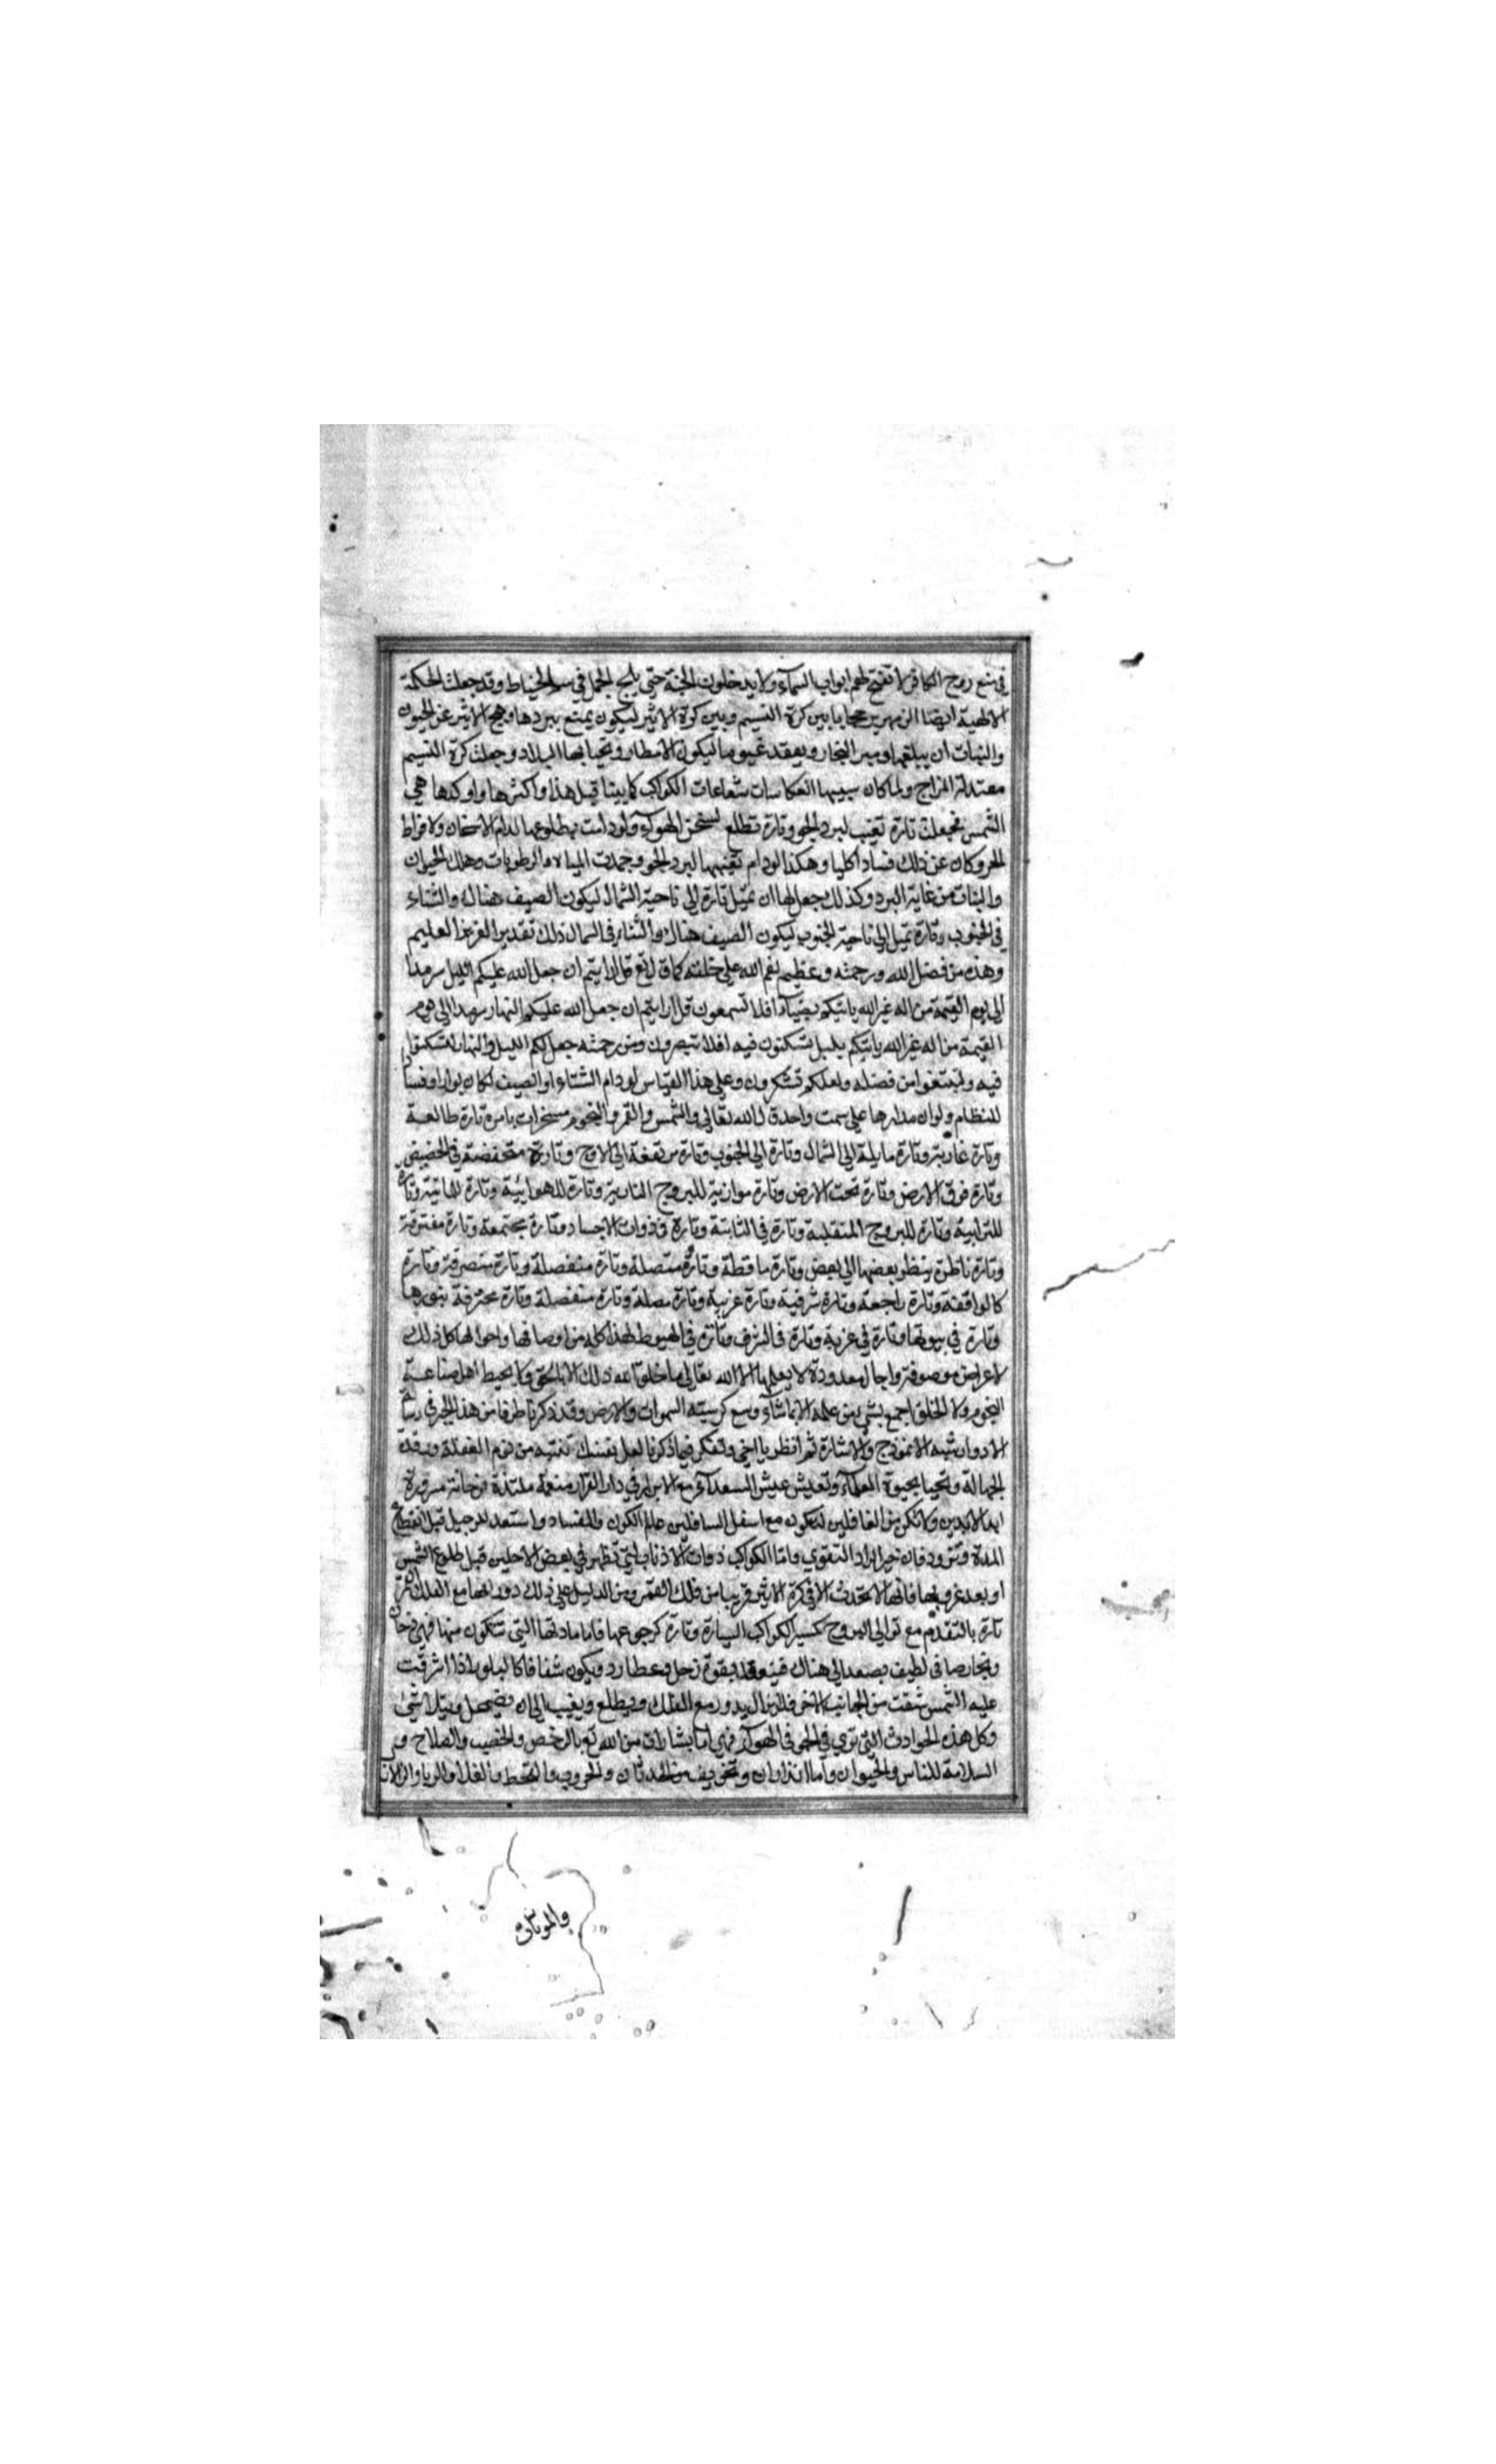 في منع روح الكافر لا تفتح لهم ابواب السمآء ولا يدخلون الجنة حتى يلج الجمل في سم الخياط وقد جعلت الحكمة
الالهية ايضا الزمهرير حجابا بين كرة النسيم وبين كرة الاثير ليكون يمنع ببردها وهج الاثير عن الحيوان
والنبات ان يبلغها وميز البخار ويعقد غيوما ليكون الامطار وتحيا بها البلاد وجعلت كرة النسيم
معتدلة المزاج ولما كان سببها انعكاسات شعاعات الكواكب كما بينا قبل هذا واكثرها واوكدها هي
الشمس فجعلت تارة تغيب لبرد الجو وتارة تطلع لسخن الهوآء ولو دامت بطلوعها لدام الاسخان ولا فراط
الحر وكان عن ذلك فسادا كليا وهكذا لو دام تغيبها البرد الجو وجمدت المياه والرطوبات وهلك الحيوان
والنبات من غاية البرد وكذلك جعل لها ان تميل تارة الى ناحية الشمال ليكون الصيف هناك والشتاء
في الجنوب وتارة تميل الى ناحية الجنوب ليكون الصيف هناك والشتاء في الشمال ذلك تقدير العزيز العليم
وهذه من فضل الله ورحمته وعظيم نعم الله على خلقه كما قال تع قل ارايتم ان جعل الله عليكم الليل سرمدا
الى يوم القيمة من اله غير الله ياتيكم بضيآء افلا تسمعون قل ارايتم ان جعل الله عليكم النهار سرمدا الى يوم
القيمة من اله غير الله ياتيكم بليل تسكنون فيه افلا تبصرون ومن رحمته جعل لكم الليل والنهار لتسكنوا
فيه ولتبتغوا من فضله ولعلكم تشكرون وعلى هذا القياس لو دام الشتاء او الصيف لكان بوارا وفسادا
للنظام ولو ان مدارها على سمت واحد قال الله تعالى والشمس والقمر والنجوم مسخرات بامره تارة طالعة
وتارة غاربة وتارة مايلة الى الشمال وتارة الى الجنوب وتارة مرتفعة الى الاوج وتارة منخفضة في الحضيض
وتارة فوق الارض وتارة تحت الارض وتارة موازنية للبروج النارية وتارة للهوائية وتارة للمائية وتارة
للترابية وتارة للبروج المنقلبة وتارة في الثابتة وتارة في ذوات الاجساد وتارة مجتمعة وتارة مفترقة
وتارة ناظرة ينظر بعضها الى بعض وتارة ساقطة وتارة متصلة وتارة منفصلة وتارة منصرفة وتارة
كالواقفة وتارة راجعة وتارة شرقية وتارة غربية وتارة متصلة وتارة منفصلة وتارة محترقة بنورها
وتارة في بيوتها وتارة في غربة وتارة في الشرف وتارة في الهبوط لهذا كله من اوصافها واحوالها كل ذلك
لاغراض موصوفة واجال معدودة لا يعلمها الا الله تعالى ما خلق الله ذلك الا بالحق ولا يحيط اهل صناعة
النجوم ولا الخلق اجمع بشئ من علمه الا بما شآء وسع كرسيه السموات والارض وقد ذكرنا طرفا من هذا الخبر في رسالة
الادوار شبه الانموذج والاشارة ثم انظر يا اخي وتفكر فيما ذكرنا لعل نفسك تنتبه من نوم الغفلة ورقدة
الجهالة وتحيا بحيوة العلمآء وتعيش عيش السعدآء مع الابرار في دار القرار منعمة ملتذة فرحانة مسرورة
ابد الابدين ولا تكن من الغافلين لتكون مع اسفل السافلين عالم الكون والفساد واستعد للرحيل قبل انقطاع
المدة وتزود فان خير الزاد التقوي واما الكواكب ذوات الاذناب التي تظهر في بعض الاحايين قبل طلوع الشمس
او بعد غروبها فانها لا تحدث الا في كرة الاثير قريبا من فلك القمر ومن الدليل على ذلك دورانها مع الفلك تارة
تارة بالتقدم مع توالي البروج كسير الكواكب السيارة وتارة كرجوعها فاما مادتها التي تتكون منها فهي دخان
وبخار صافى لطيف يصعد الى هناك فينعقد بقوة زحل وعطارد ويكون شفافا كالبلور اذا اشرقت
عليه الشمس شفت من الجانب الاخر فلا يزال يدور مع الفلك ويطلع ويغيب الى ان يضمحل ويتلاشى
وكل هذه الحوادث التي تري في الجو في الهوآء فهي اما بشارات من الله تع بالرخص والخصب والصلاح و
السلامة للناس والحيوان واما انذارات وتخويف من الحدثان والحروب والقحط والغلا والوبا والزلازل
والموتان